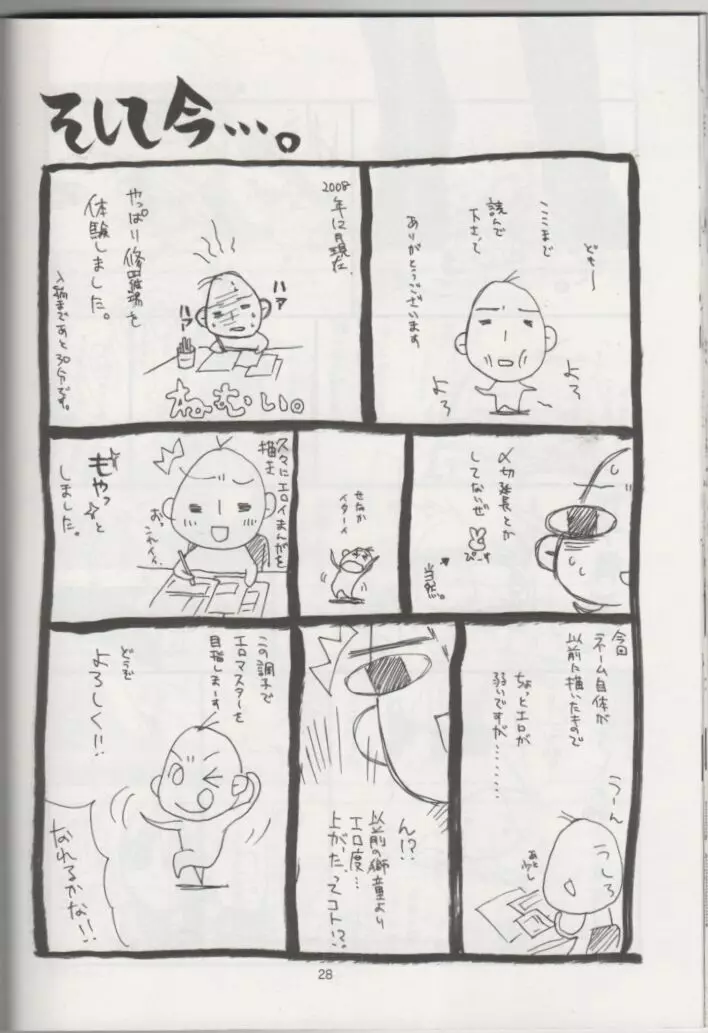 そして今…。
どもー
ここまで
読んで
下さって
ありがとうございます
よろ
よろ
2008年12月現在、
やっぱり修羅場を
体験しました。
入稿まであと30分です。
ハア
ハア
ねむい。
〆切延長とか
してないぜ
ぴーす
当然。
せなか
イターイ
久々にエロイまんがを
描き
もやっと
しました。
お。
これイイ、
今回
ネーム自体が
以前に描いたもので
ちょっとエロが
弱いですが………
うーん
うしろ
あと少し
ん!?
以前の獅童より
エロ度…
上がったってコト!?
この調子で
エロマスターを
目指しまーす
どうぞ
よろしく!!
なれるかな!!
28